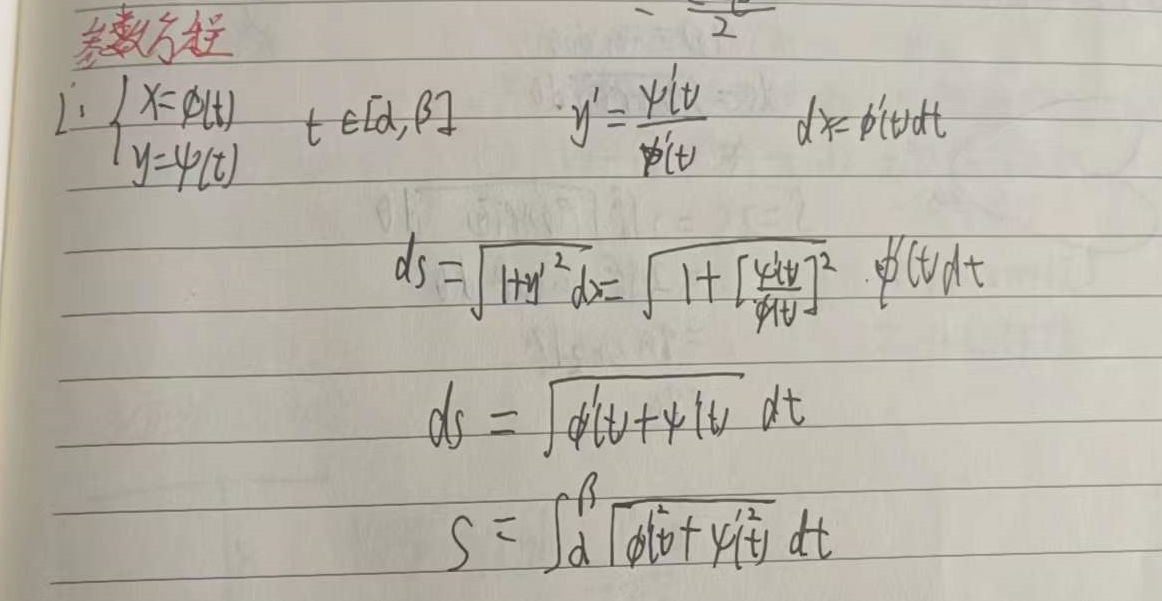 2
参数方程
L: { x=φ(t) y=ψ(t) t∈[α,β] y'=ψ'(t)/φ'(t) dx=φ'(t)dt
ds=√(1+y'²)dx=√(1+[ψ'(t)/φ'(t)]²)·φ'(t)dt
ds=√(φ'(t)+ψ'(t)) dt
S=∫_α^β √(φ'²(t)+ψ'²(t)) dt